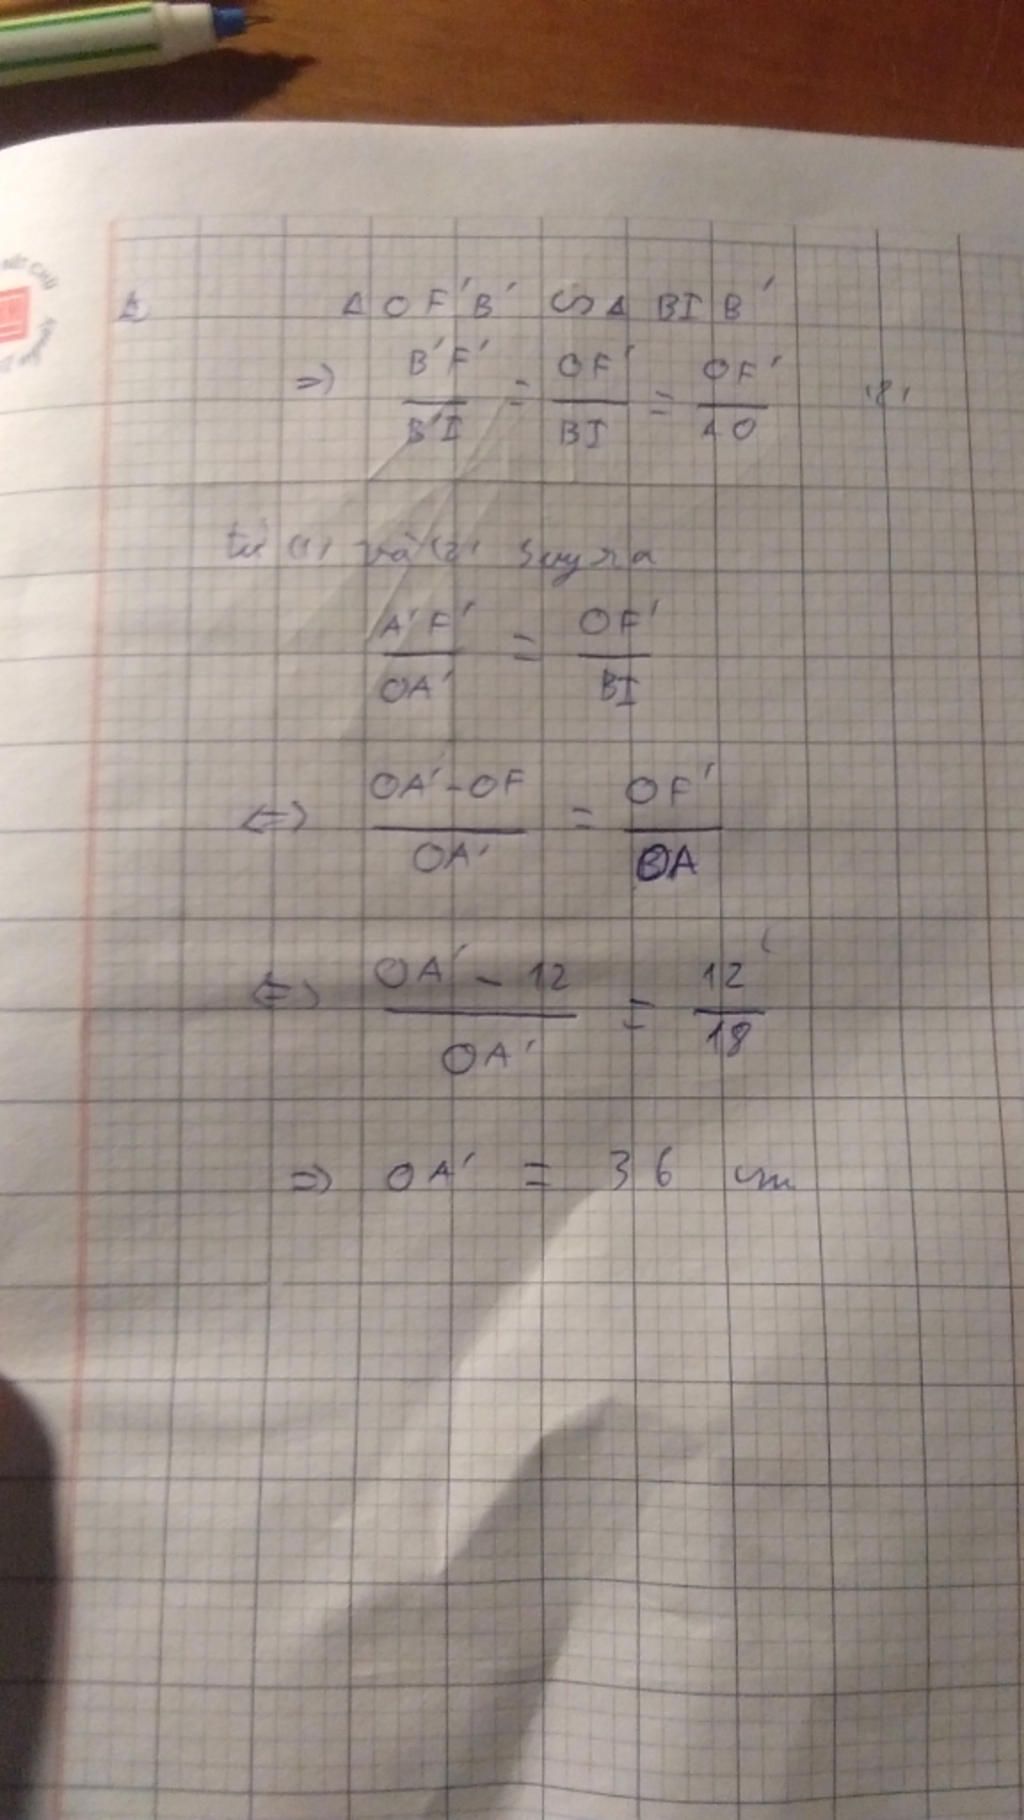 Δ OF'B' ∽ Δ BIB'
=> B'F'/B'I = OF'/BI = OF'/AO (2)
từ (1) và (2) suy ra
A'F'/OA' = OF'/BI
<=> OA'-OF/OA' = OF'/OA
<=> OA' - 12/OA' = 12/18
=> OA' = 36 cm